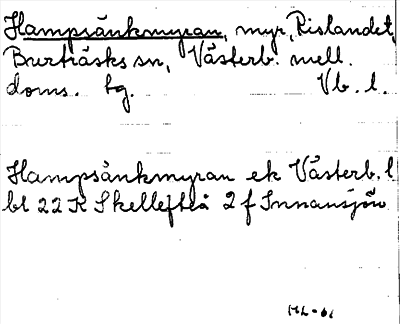 Hampsänkmyran, myr, Rislandet,
Burträsks sn, Västerb. mell.
doms. tg. Vb. l.
Hampsänkmyran ek Västerb. l
bl 22 K Skellefteå 2 f Innansjön
ML-61